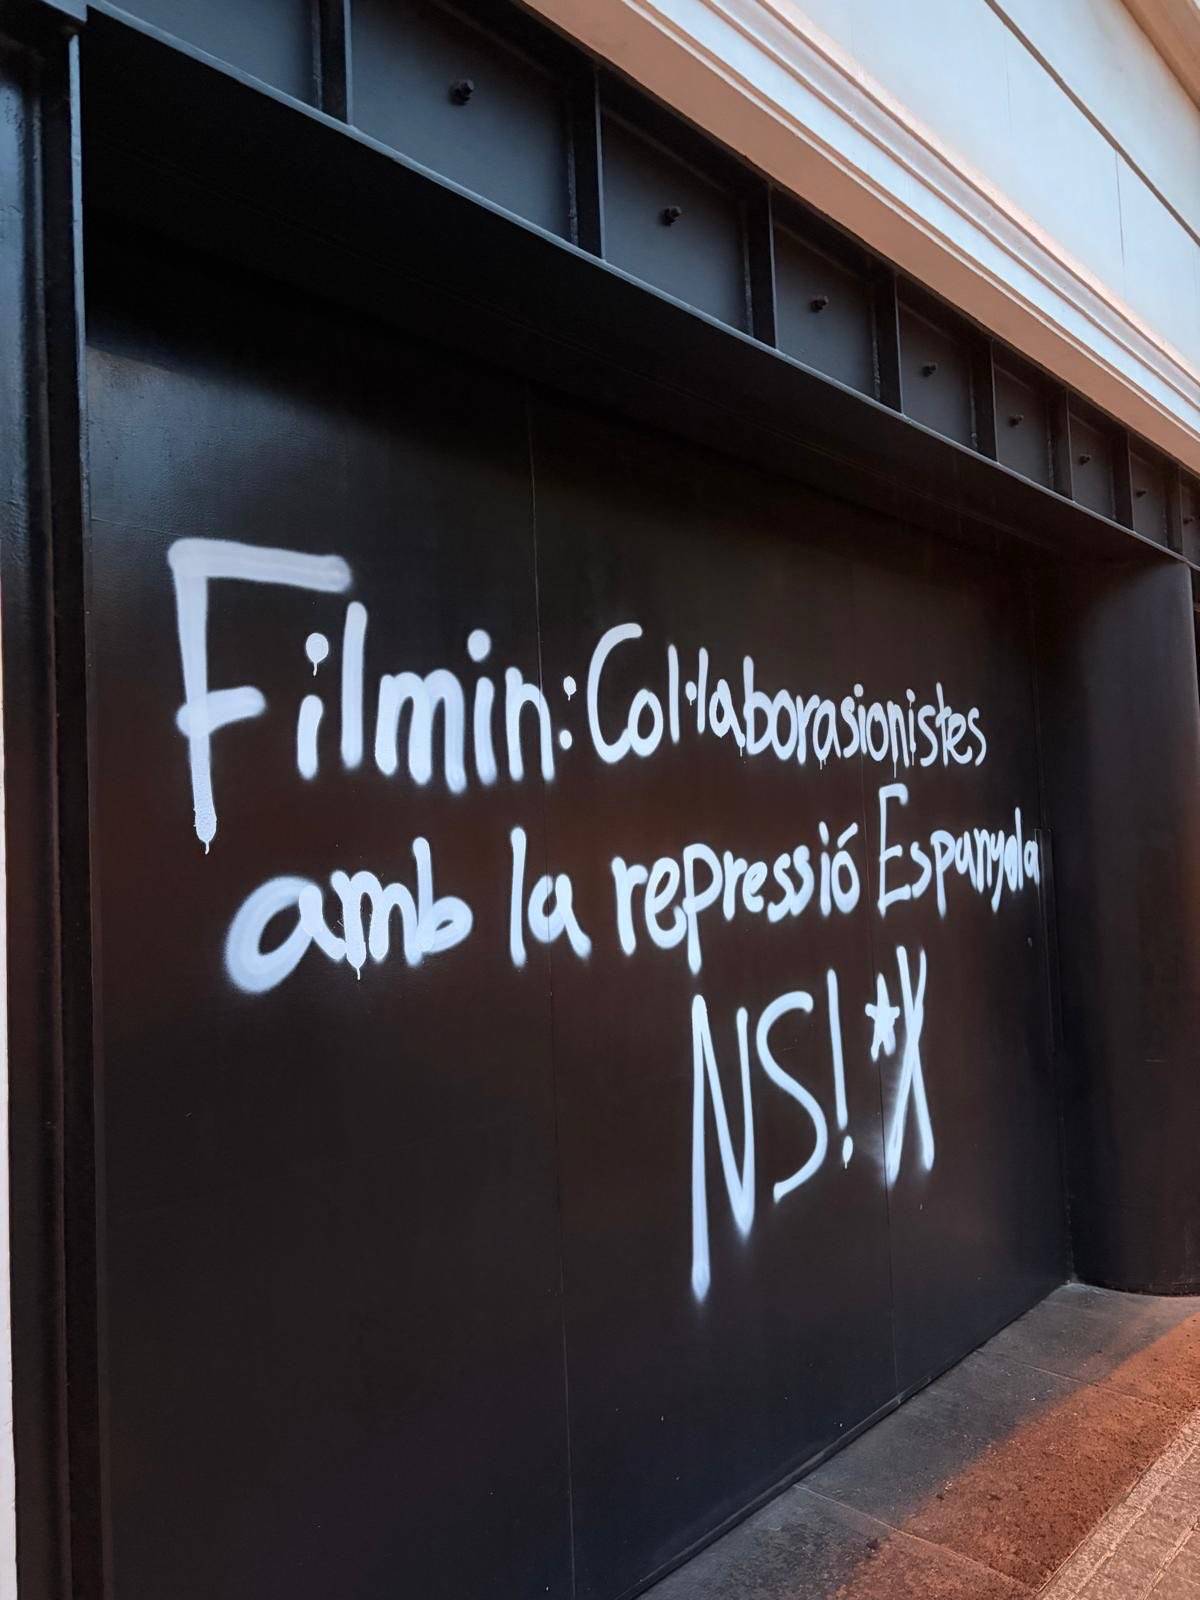 Filmin: Col·laborasionistes
amb la repressió Espanyola
NS! *X